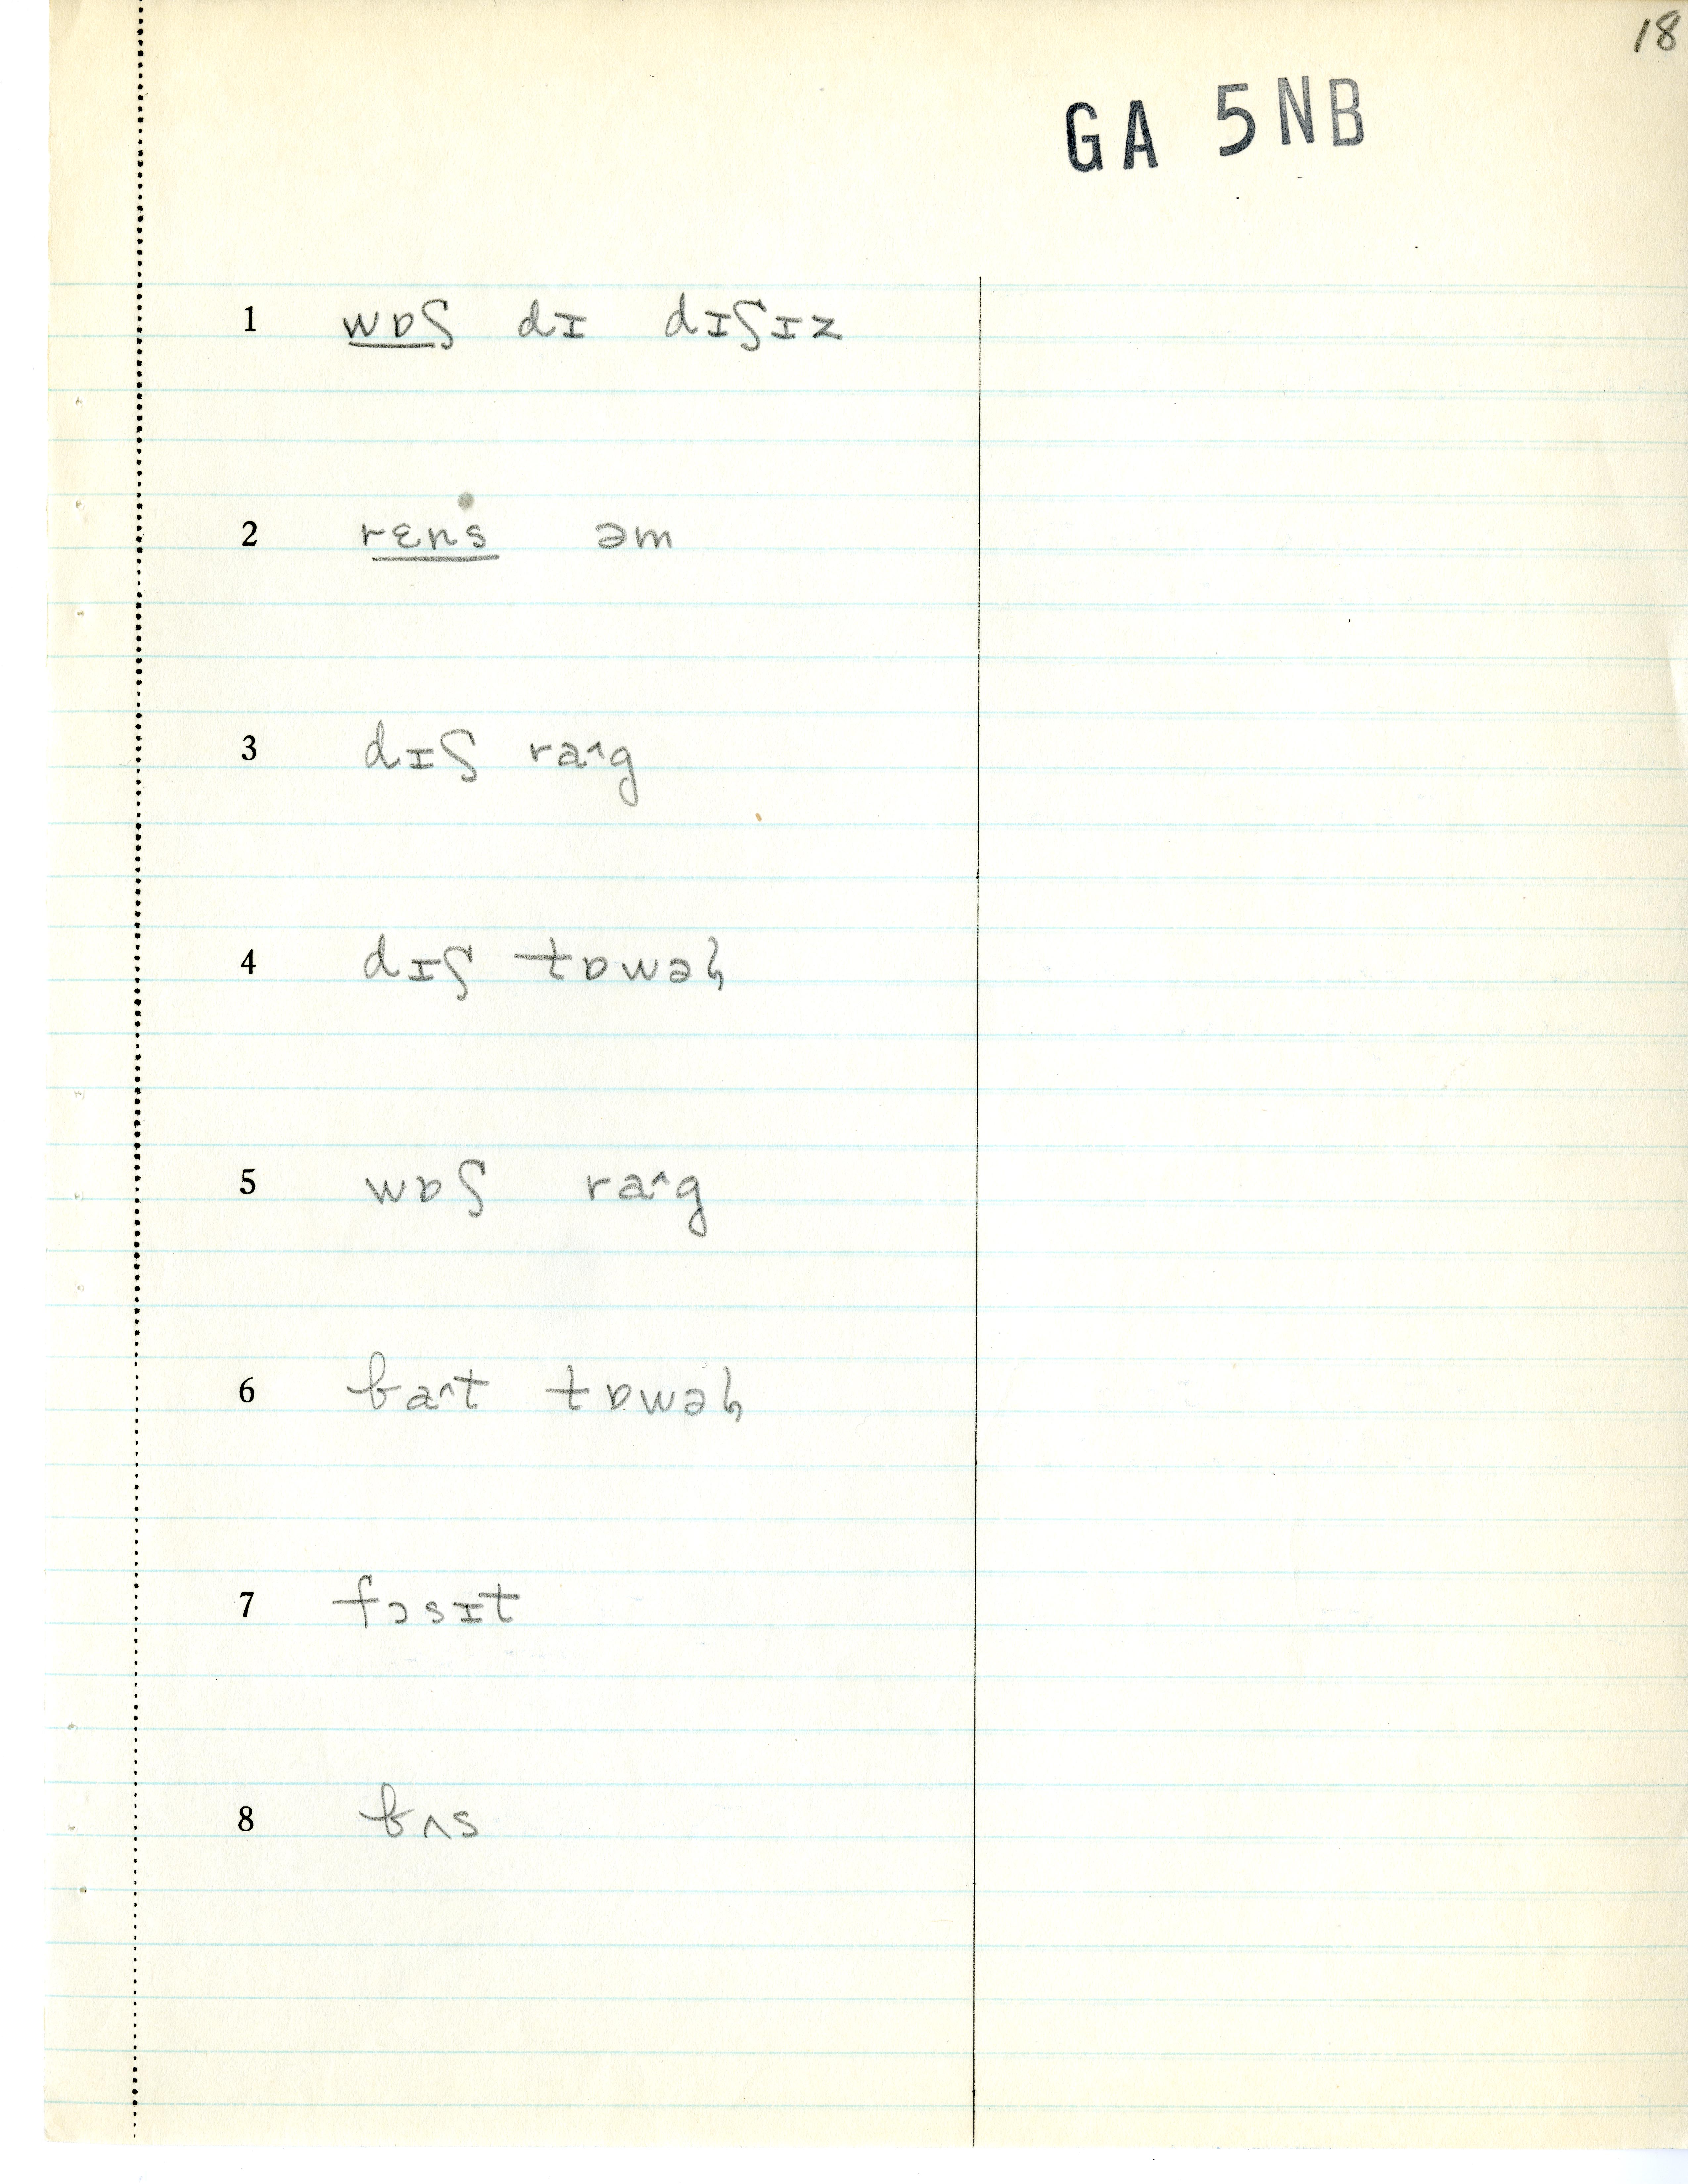 18
GA 5NB
1 wɒʃ dɪ dɪʃɪz
2 rɛnˢ əm
3 dɪʃ ra^g
4 dɪʃ tɒwəɫ̡
5 wɒʃ ra^g
6 ba^t tɒwəɫ̡
7 fɔsɪt
8 bʌs